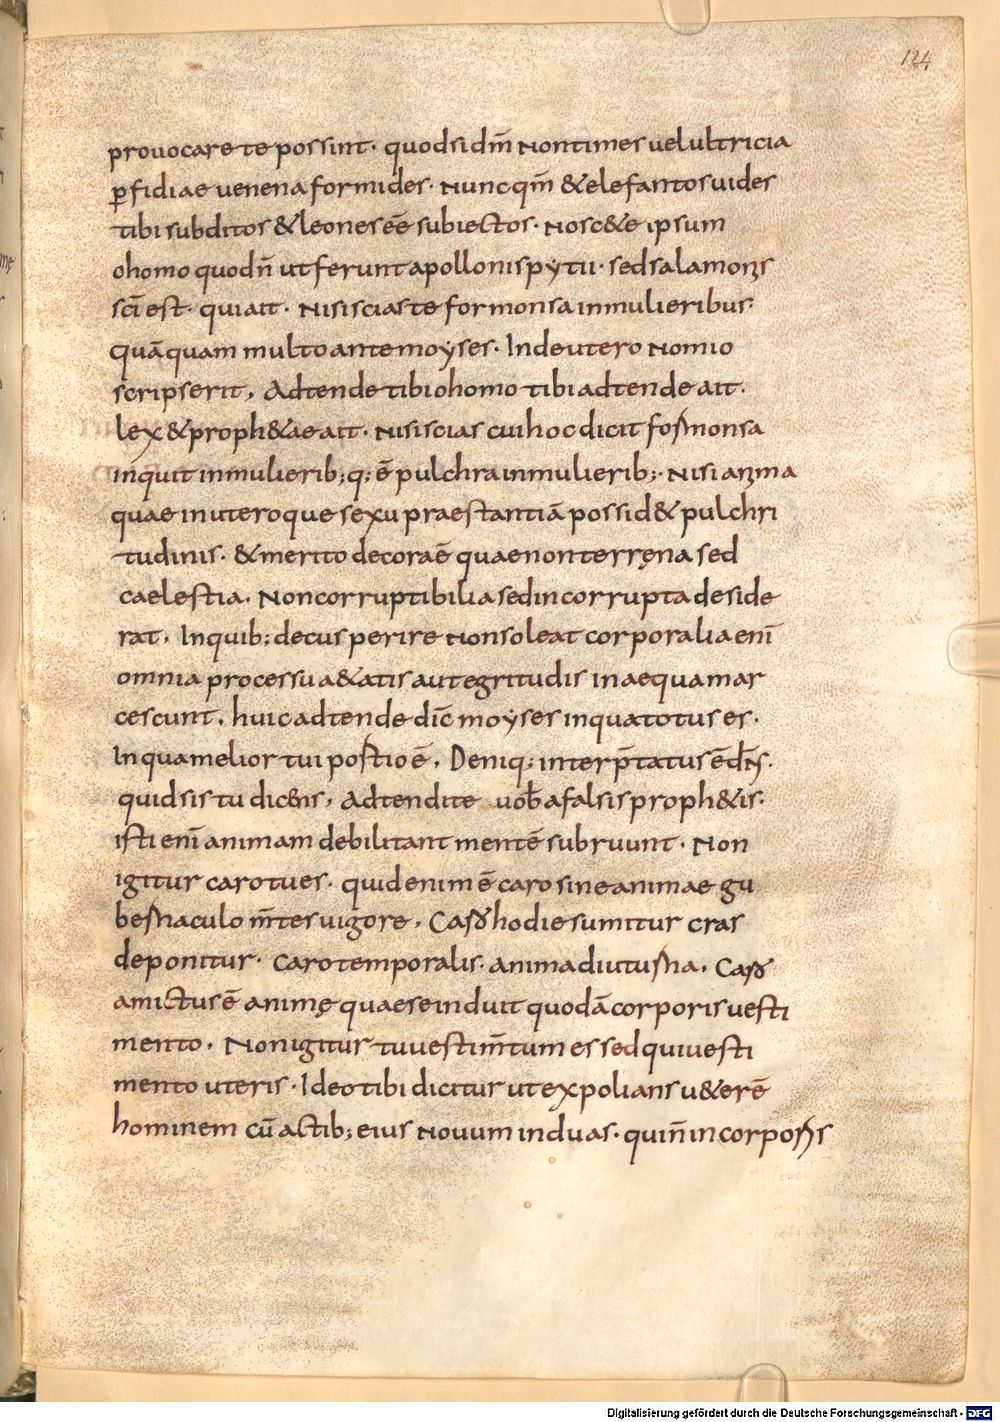 124
prouocare te possint· quodsi dm̄ non times uel ultricia
ꝑfidiae uenena formides· Nunc qm̄ & elefantos uides
tibi subditos & leones eē subiectos· Nosc&e ipsum
o homo quod n̄ ut ferunt apollonis pytii· sed salamonis
sc̄i est· qui ait· Nisi scias te formonsa in mulieribus·
quāquam multo ante moẏses· In deuteronomio
scripserit, Adtende tibi o homo tibi adtende ait·
lex & proph&ae ait· Nisi scias cui hoc dicit formonsa
inquit in mulierib; q; ē pulchra in mulierib;· Nisi anima
quae in utero que sexu praestantiā possid& pulchri
tudinis· & merito decora ē quae non terręna sed
caelestia· Non corruptibilia sed incorrupta deside
rat· In quib; decus perire non soleat corporalia enī
omnia processu a&atis aut egritudis inaequa mar
cescunt, huic adtende dic̄ moẏses in qua totus es·
In qua melior tui postio ē, Deniq; interp̄tatus ē dn̄s·
quid sis tu dicens, Adtendite uob̄ a falsis proph&is·
isti enī animam debilitant mentē subruunt· Non
igitur caro tu es· quid enim ē caro sine animae gu
bernaculo m̄tes uigore, Caro hodie sumitur cras
deponitur· Caro temporalis· anima diuturna, Caro
amictus ē animę quae se induit quodā corporis uesti
mento, Non igitur tu uestim̄tum es sed qui uesti
mento uteris· Ideo tibi dicitur ut expolians u&erē
hominem cū actib; eius nouum induas· qui n̄ in corporis
Digitalisierung gefördert durch die Deutsche Forschungsgemeinschaft - DFG